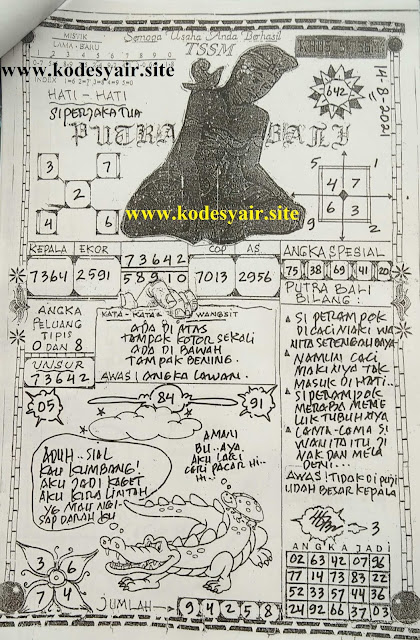 MISTIK
LAMA - BARU
Semoga Usaha Anda Berhasil
TSSM
www.kodesyair.site
HATI - HATI
SI PERJAKA TUA
PUTRA BALI
642
14-8-2021
3 7
2
4 6
www.kodesyair.site
5 1
4 7
6 3
9 2
KEPALA EKOR
7364 2591
73642
58910
COP AS
7013 2956
ANGKA SPESIAL
75 38 69 41 20
ANGKA
PELUANG
TIPIS
0 DAN 8
UNSUR
73642
KATA - KATA WANGSIT
ADA DI ATAS
TAMPAK KOTOR SEKALI
ADA DI BAWAH
TAMPAK BENING.
AWAS! ANGKA LAWAN.
PUTRA BALI
BILANG:
SI PERAMPOK
DI CACI MAKI WA
NITA SETENGAH BAYA
NAMUN CACI
MAKI NYA TAK
MASUK DI HATI..
SI PERAMPOK
MERABA MEME
LUK TUBUH NYA
LAMA-LAMA SI
WANITA ITU JI
NAK DAN MELA
DENI...
AWAS! TIDAK DI PUJI
UDAH BESAR KEPALA
05
84
91
ADUH..SIAL
KAU KUMBANG!
AKU JADI KAGET
AKU KIRA LINTAH
YG MAU NGI-
SAP DARAH KU
AMANI
BU..AYA.
AKU LARI
CERI PACAR HI..
HI..
3 6
7 4
3
JUMLAH 9 4 2 5 8
ANGKA JADI
02 63 42 07 96
77 14 73 83 22
52 33 57 44 36
24 92 66 37 03